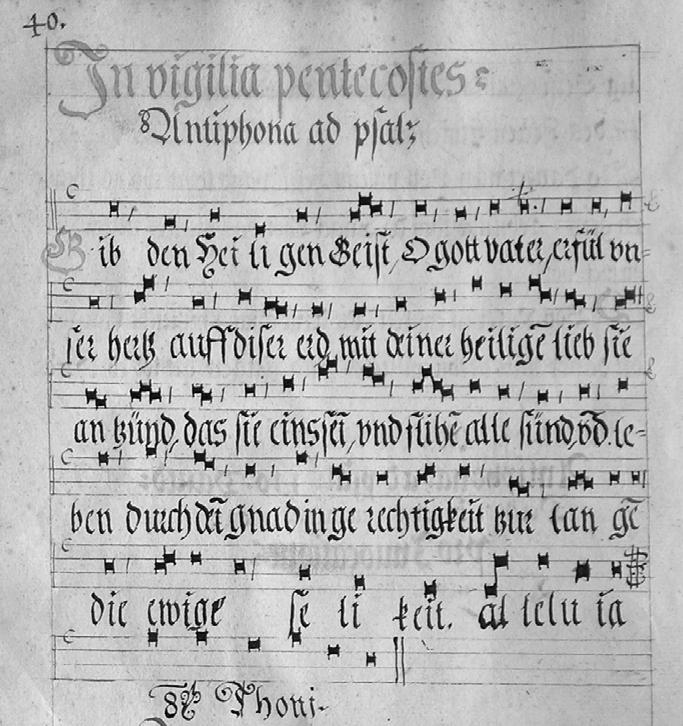 40.
In vigilia pentecostes
Antiphona ad psal
Gib den Hei li gen Geist, O gott vater, erfül vn=
ser hertz auff diser erd, mit deiner heiligē lieb sie
an tzünd, das sie eins seī, vnd flihē alle sünd, vōd. le=
ben durch dēī gnad in ge rechtigkeit tzur lan gē
die ewige se li keit. al lelu ia
8 Thoni.